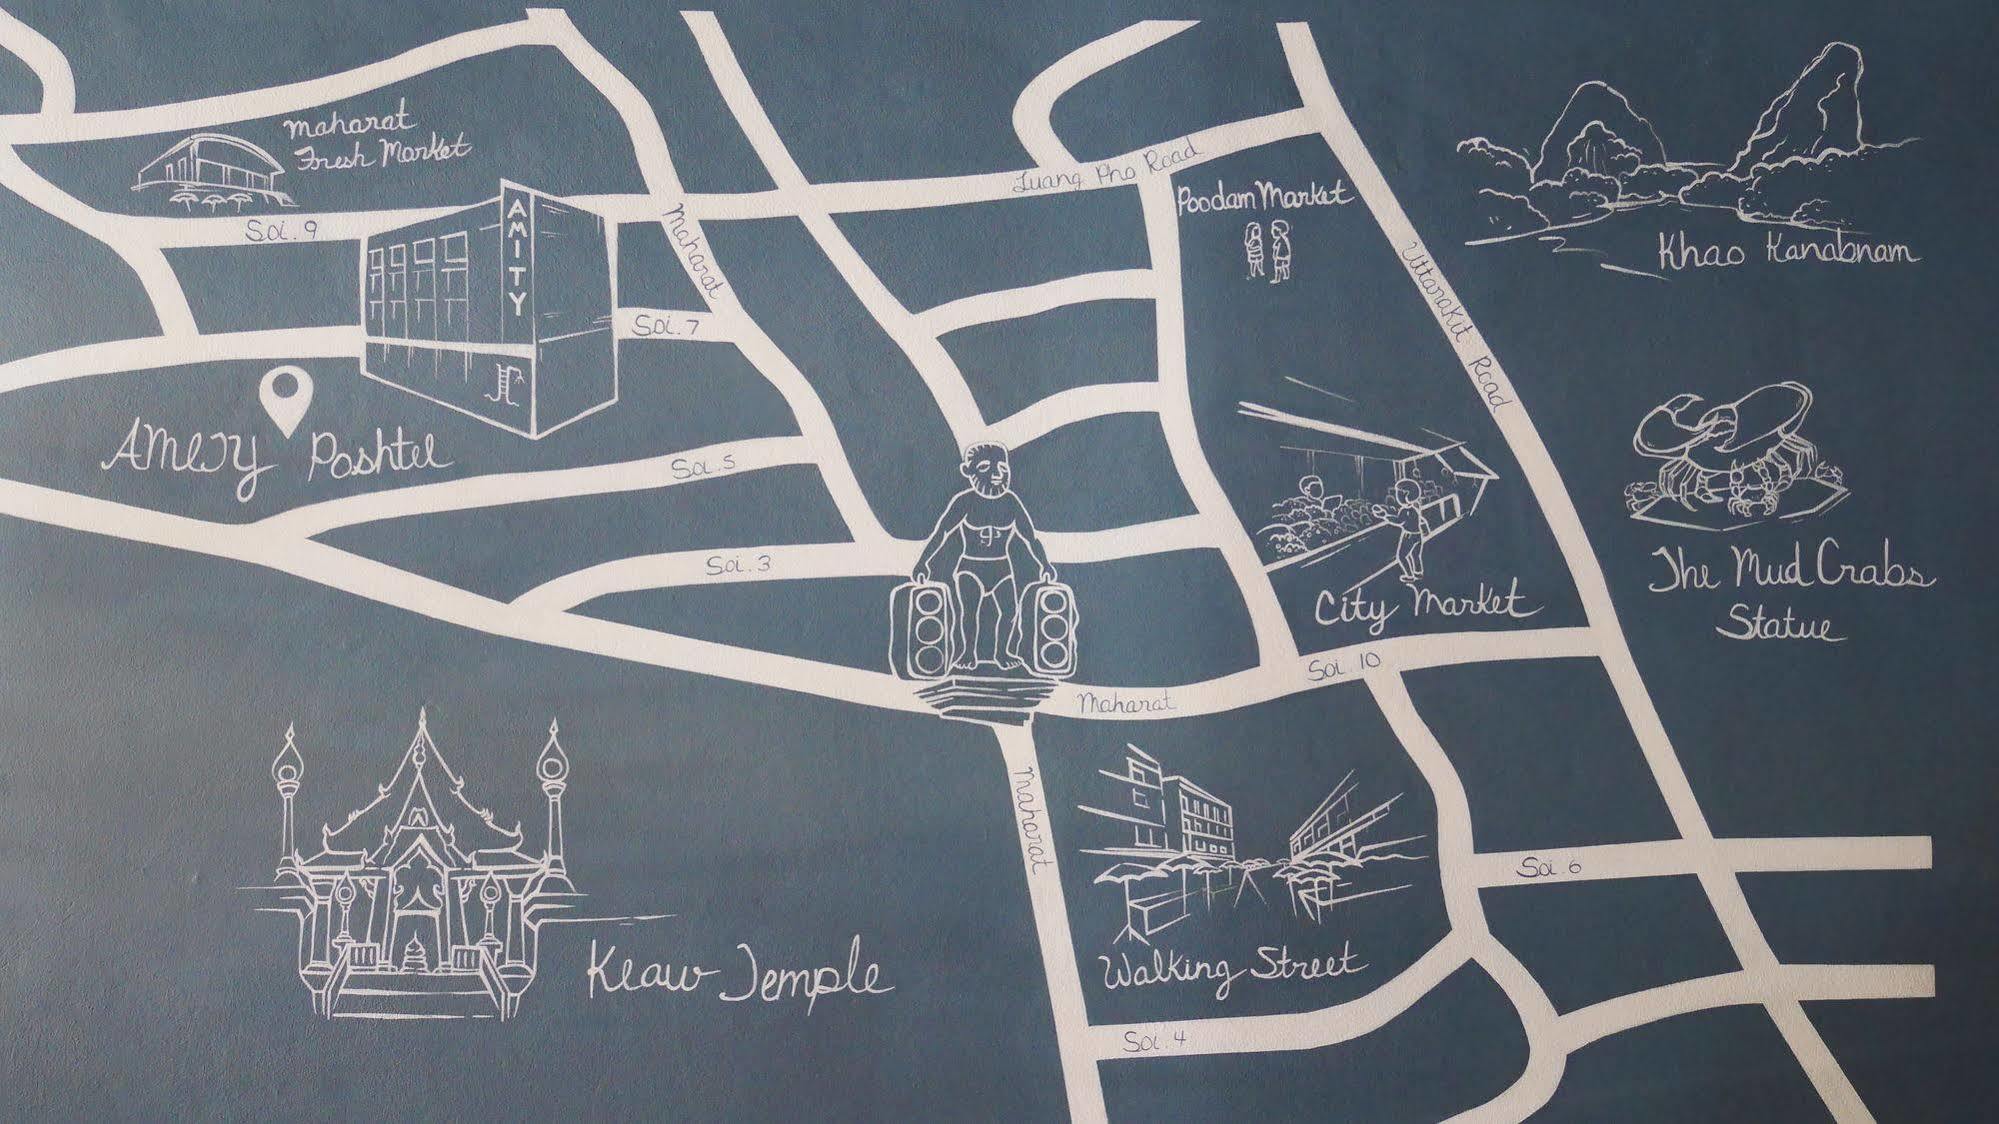 Maharat
Fresh Market
Soi. 9
AMITY
Soi. 7
Maharat
Luang Pho Road
Poodam Market
Uttarakit Road
Khao Kanabnam
Poshtel
Soi. 5
Soi. 3
City Market
The Mud Crabs
Statue
Soi. 10
Maharat
Maharat
Keaw Temple
Walking Street
Soi. 6
Soi. 4